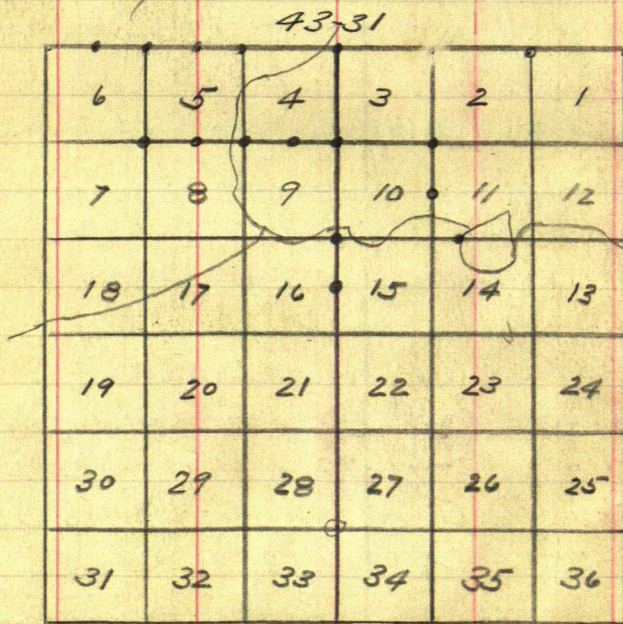 43-31
6 5 4 3 2 1
7 8 9 10 11 12
18 17 16 15 14 13
19 20 21 22 23 24
30 29 28 27 26 25
31 32 33 34 35 36